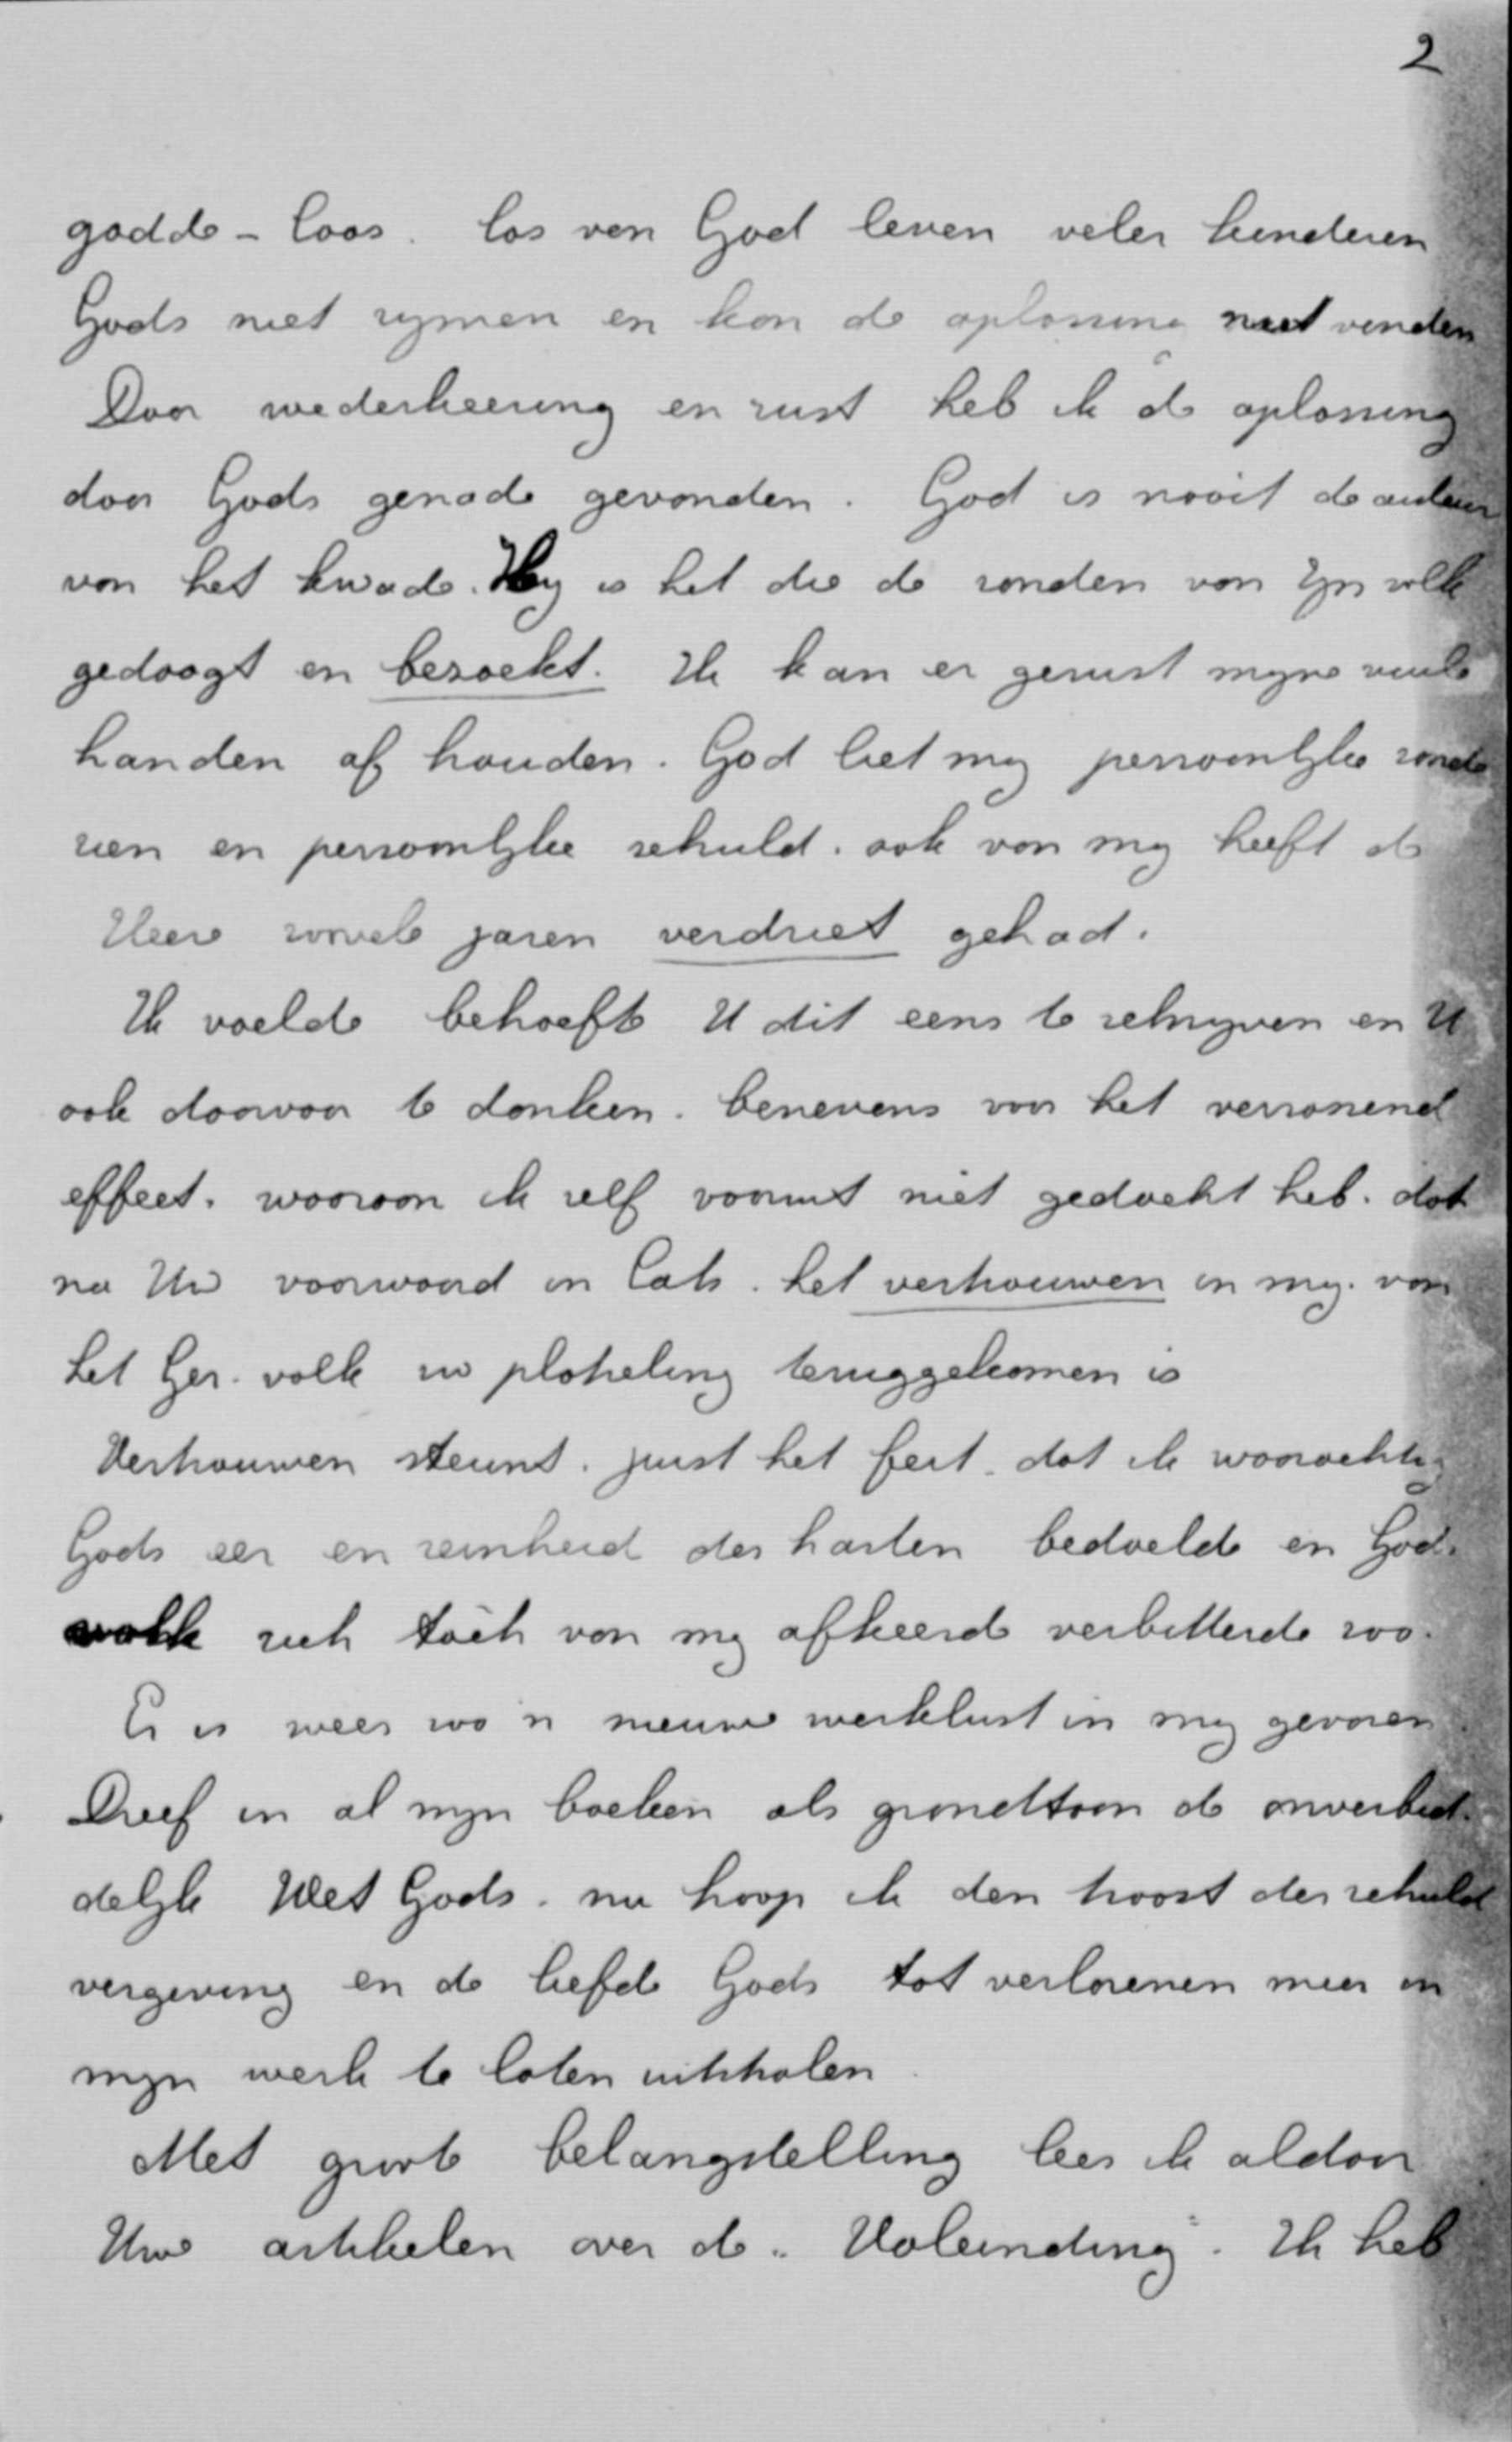 2
godde-loos. los van God leven veler kinderen
Gods niet rymen en kon de oplossing niet vinden
Door wederkeering en rust heb ik de oplossing
door Gods genade gevonden. God is nooit de auteur
van het kwade. Hy is het die de zonden van Zyn volk
gedoogt en bezoekt. Ik kan er gerust myne vuile
handen af houden. God liet my persoonlyke zonde
zien en persoonlyke schuld. ook van my heeft de
Heere zoovele jaren verdriet gehad.
Ik voelde behoefte U dit eens te schryven en U
ook daarvoor te danken. benevens voor het verrassend
effect. waaraan ik zelf vooruit niet gedacht heb. dat
na Uw voorwoord in Cats. het vertrouwen in my. van
het Ger. volk zoo plotseling teruggekomen is
Vertrouwen steunt. juist het feit. dat ik waarachtig
Gods eer en reinheid des harten bedoelde en God.
volk zich tòch van my afkeerde verbitterde zoo.
Er is weer zoo'n nieuwe werklust in my gevaren.
Dreef in al myn boeken als grondtoon de onverbid-
delyk Wet Gods. nu hoop ik den troost der schuld
vergeving en de liefde Gods tot verlorenen meer in
myn werk te laten uitstralen.
Met groote belangstelling lees ik aldoor
Uwe artikelen over de „Voleinding". Ik heb